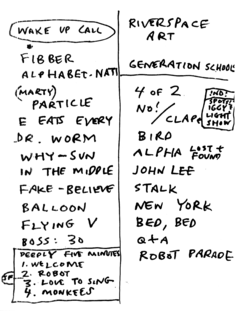 WAKE UP CALL
FIBBER
ALPHABET-NATI
(MARTY)
PARTICLE
E EATS EVERY
DR. WORM
WHY-SUN
IN THE MIDDLE
FAKE-BELIEVE
BALLOON
FLYING V
BOSS: 30
DEEPLY FIVE MINUTES
1. WELCOME
2. ROBOT
3. LOVE TO SING
4. MONKEES
RIVERSPACE
ART
GENERATION SCHOOL
4 OF 2
NO!
/CLAP
IGGY'S
LIGHT
SHOW
BIRD
ALPHA LOST + FOUND
JOHN LEE
STALK
NEW YORK
BED, BED
Q+A
ROBOT PARADE